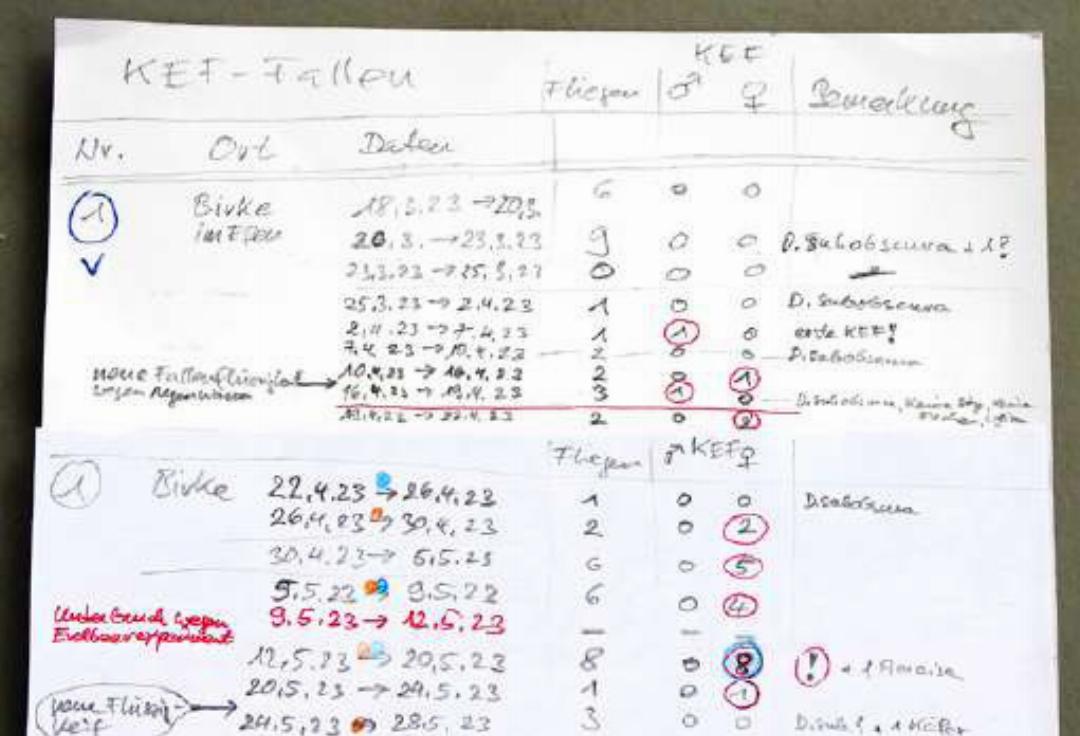 KEF
KEF-Fallen Fliegen ♂ ♀ Bemerkung
Nr. Ort Daten
1 Birke 18.3.23 → 20.3. 6 0 0
im Efeu 20.3. → 23.3.23 9 0 0 D. Subobscura + 1?
23.3.23 → 25.3.23 0 0 0 —
25.3.23 → 2.4.23 1 0 0 D. Subobscura
→ 7.4.23 1 1 0 erste KEF!
7.4.23 → 10.4.23 2 0 0 D. Subobscura
neue Fallenflüssigkeit → 10.4.23 → 16.4.23 2 0 1
wegen Regenwasser 16.4.23 → 19.4.23 3 1 0 D. Subobscura, keine
19.4.23 → 22.4.23 2 0 2
Fliegen ♂ KEF ♀
1 Birke 22.4.23 → 26.4.23 1 0 0 D. Subobscura
26.4.23 → 30.4.23 2 0 2
30.4.23 → 5.5.23 6 0 5
5.5.23 → 9.5.23 6 0 4
Unterbruch wegen 9.5.23 → 12.5.23 — — —
Erdbeerexperiment
12.5.23 → 20.5.23 8 0 8 ! + 1 Ameise
20.5.23 → 24.5.23 1 0 1
neue Flüssig- →
keit 24.5.23 → 28.5.23 3 0 0 D. sub.? + 1 Käfer